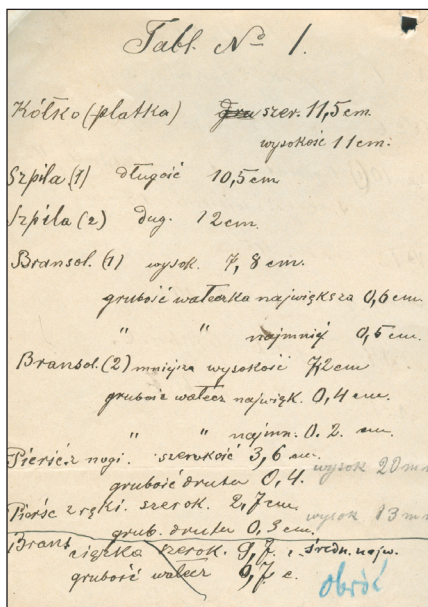 Tabl. No 1.
Kółko (płatka) szer. 11,5 cm.
wysokość 11 cm.
Szpila (1) długość 10,5 cm
Szpila (2) dug. 12 cm.
Bransol. (1) wysok. 7,8 cm.
grubość wałeczka największa 0,6 cm.
" " najmniej 0,5 cm.
Bransol. (2) mniejsza wysokość 7,2 cm
grubość wałecz najwięk. 0,4 cm.
" " najmn. 0.2. cm.
Pierść z nogi. szerokość 3,6 cm. wysok 20 m
grubość druta 0,4.
Pierśc z ręki. szerok. 2,7 cm. wysok 13 m
grub. druta 0,3 cm.
Brans szerok. 9,7. c. średn. najw.
grubość wałecz 0,7 c.
obróć